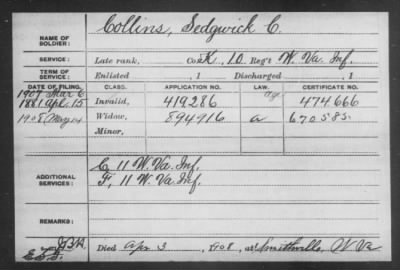 NAME OF SOLDIER: Collins, Sedgwick C.
SERVICE: Late rank, Co. K, 10 Reg't W. Va. Inf.
TERM OF SERVICE: Enlisted , 1 Discharged , 1
DATE OF FILING. CLASS. APPLICATION NO. LAW. CERTIFICATE NO.
1907 Mar 6
1881 Apr. 15 Invalid, 419286 474666
1908 May 14 Widow, 894916 a 670585
Minor,
ADDITIONAL SERVICES: C, 11 W. Va. Inf.
F, 11 W. Va. Inf.
REMARKS:
Died Apr 3, 1908, at Smithville, W Va